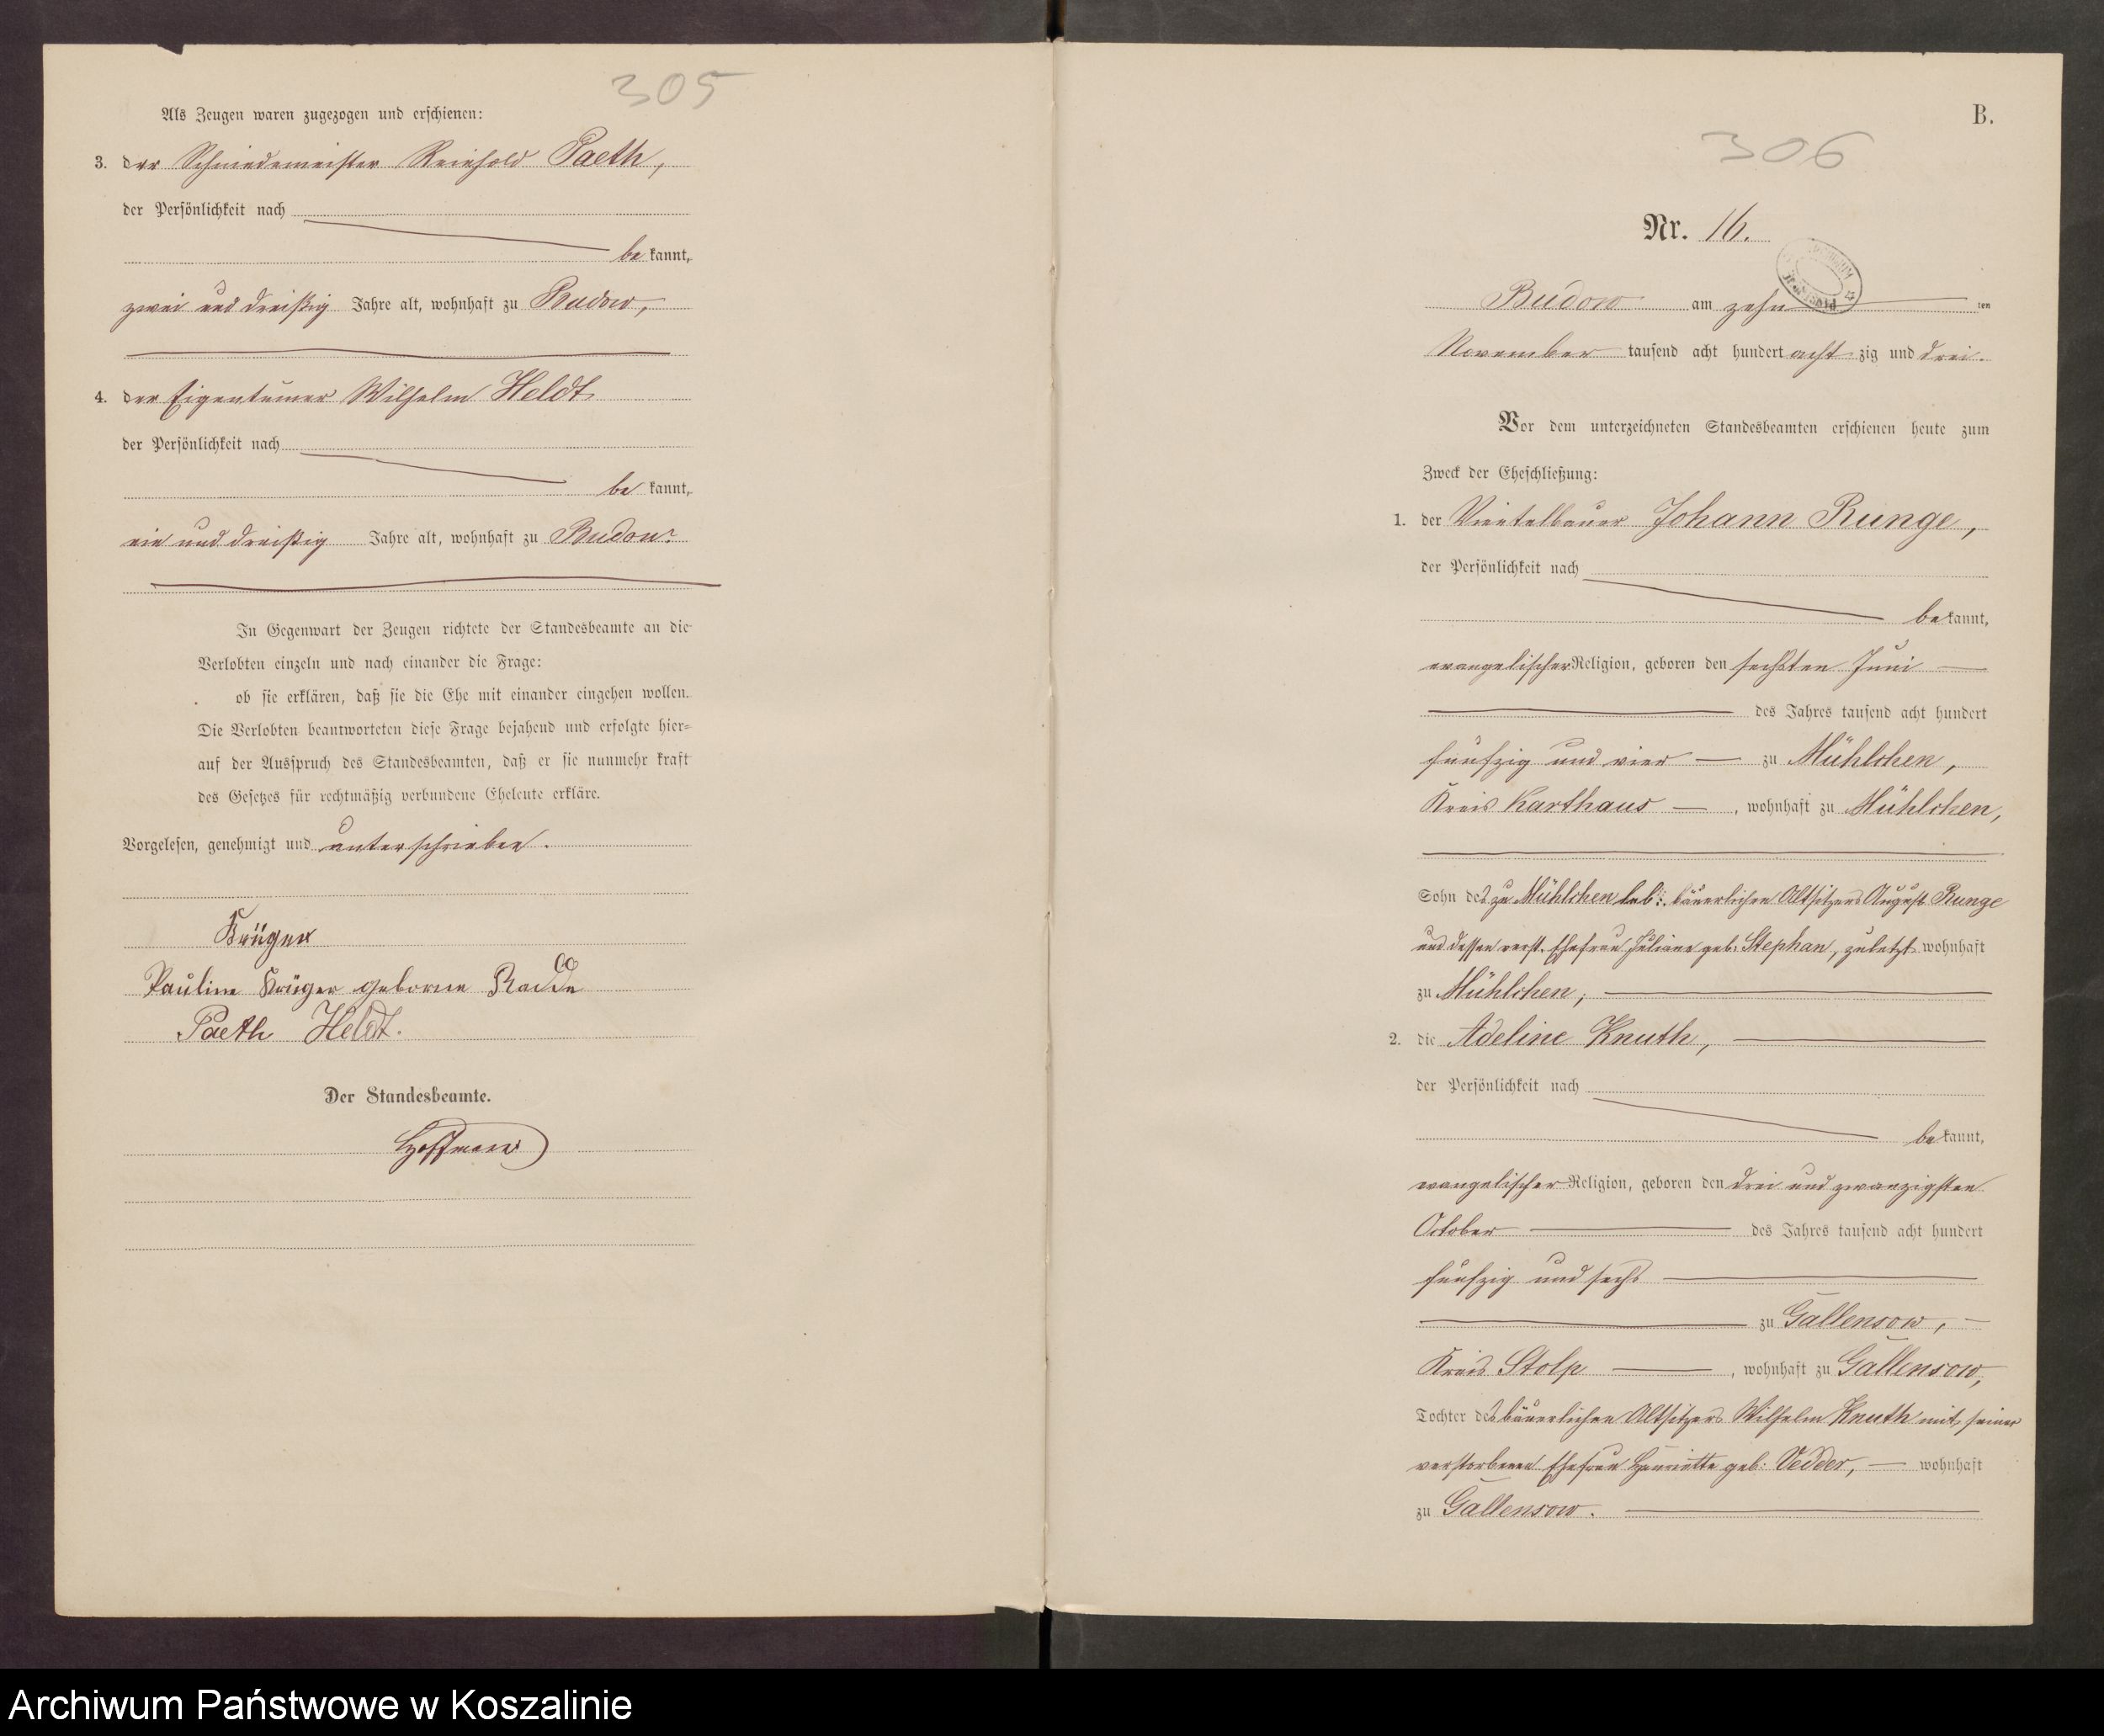 305
Als Zeugen waren zugezogen und erschienen:
3. der Schmiedemeister Reinhold Paeth,
der Persönlichkeit nach
be kannt,
zwei und dreißig Jahre alt, wohnhaft zu Budow,
4. der Eigentümer Wilhelm Heldt
der Persönlichkeit nach
be kannt,
ein und dreißig Jahre alt, wohnhaft zu Budow.
In Gegenwart der Zeugen richtete der Standesbeamte an die
Verlobten einzeln und nach einander die Frage:
ob sie erklären, daß sie die Ehe mit einander eingehen wollen.
Die Verlobten beantworteten diese Frage bejahend und erfolgte hier=
auf der Ausspruch des Standesbeamten, daß er sie nunmehr kraft
des Gesetzes für rechtmäßig verbundene Eheleute erkläre.
Vorgelesen, genehmigt und unterschrieben.
Krüger
Pauline Krüger geborne Radde
Paeth Heldt.
Der Standesbeamte.
Hoffmann
B.
306
Nr. 16.
Budow am zehn ten
November tausend acht hundert acht zig und drei.
Vor dem unterzeichneten Standesbeamten erschienen heute zum
Zweck der Eheschließung:
1. der Viertelbauer Johann Runge,
der Persönlichkeit nach
be kannt,
evangelischer Religion, geboren den sechsten Juni
des Jahres tausend acht hundert
fünfzig und vier zu Mühlchen,
Kreis Karthaus, wohnhaft zu Mühlchen,
Sohn des zu Mühlchen leb: bäuerlichen Altsitzers August Runge
und dessen verst. Ehefrau Juliane geb. Stephan, zuletzt wohnhaft
zu Mühlchen;
2. die Adeline Knuth,
der Persönlichkeit nach
be kannt,
evangelischer Religion, geboren den drei und zwanzigsten
October des Jahres tausend acht hundert
fünfzig und sechs
zu Gallensow,
Kreis Stolp, wohnhaft zu Gallensow,
Tochter des bäuerlichen Altsitzers Wilhelm Knuth mit seiner
verstorbenen Ehefrau Henriette geb: Vedder, wohnhaft
zu Gallensow.
Archiwum Państwowe w Koszalinie